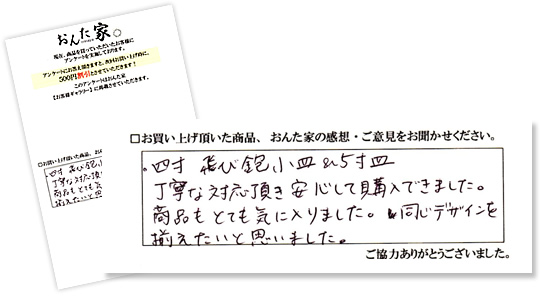 おんた家。
現在、商品を買っていただいたお客様に
アンケートを実施しております。
アンケートにお答え頂きますと、次回お買い上げ時に、
500円割引とさせていただきます！
このアンケートはおんた家
【お客様ギャラリー】に掲載させていただきます。
□お買い上げ頂いた商品、おん
・四寸 飛び鉋小
丁寧な対応頂
商品もとても気
揃えたいと思
□お買い上げ頂いた商品、おんた家の感想・ご意見をお聞かせください。
・四寸 飛び鉋小皿 & 5寸皿
丁寧な対応頂き安心して購入できました。
商品もとても気に入りました。同じデザインを
揃えたいと思いました。
ご協力ありがとうございました。